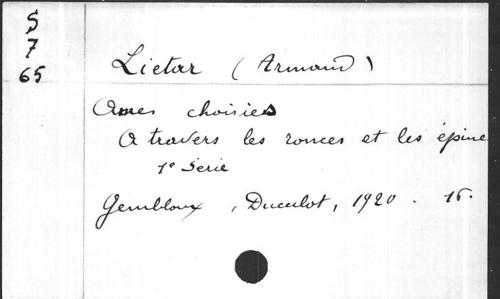 S
7
65
Lietar (Armand)
Ames choisies
A travers les ronces et les épine
1e Serie
Gembloux, Duculot, 1920. 16.